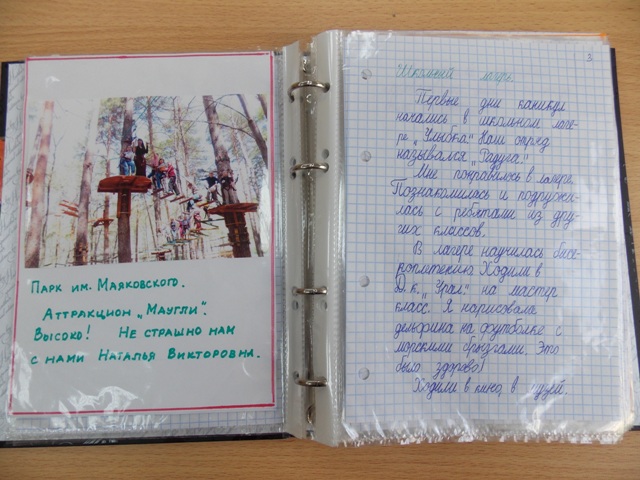 Парк им. Маяковского.
Аттракцион „Маугли".
Высоко! Не страшно нам
с нами Наталья Викторовна.
3
Школьный лагерь
Первые дни каникул
начались в школьном лаге-
ре „Улыбка". Наш отряд
назывался „Радуга".
Мне понравилось в лагере.
Познакомилась и подружи-
лась с ребятами из дру-
гих классов.
В лагере научилась бисе-
роплетению. Ходили в
Д.к. „Урал" на мастер
класс. Я нарисовала
дельфина на футболке с
морскими брызгами. Это
было здорово!
Ходили в кино, в музей.